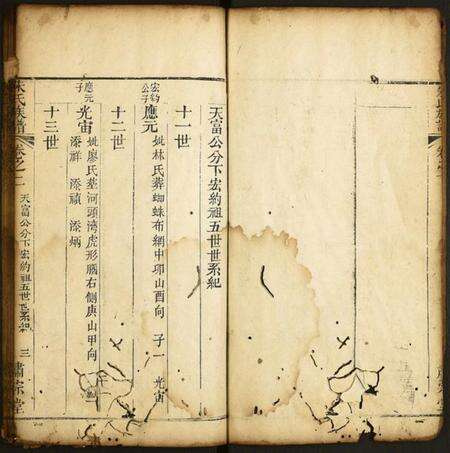 天富公分下宏約祖五世世系紀
十一世
宏約公子
應元 妣林氏葬蜘蛛布網申卯山酉向 子一 光宙
十二世
應元子
光宙 妣廖氏葬河頭湾虎形腦右側庚山甲向
添祥 添禎 添炳
十三世
氏族譜
卷之一
天富公分下宏約祖五世世系紀
三
肅宗堂